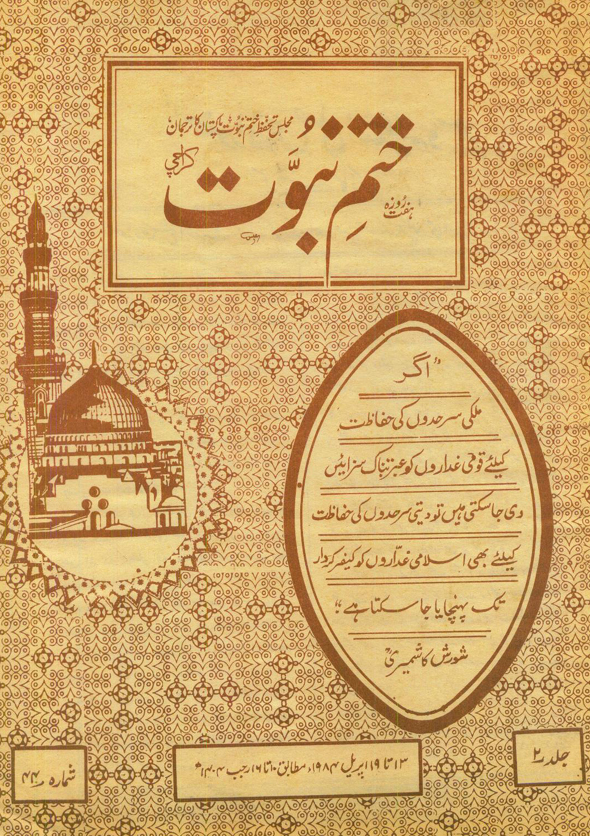 مجلس تحفظ ختم نبوت پاکستان کا ترجمان
کراچی
ہفت روزہ
ختمِ نبوّت
"اگر
ملکی سرحدوں کی حفاظت
کیلئے قومی غداروں کو عبرتناک سزائیں
دی جاسکتی ہیں تو دینی سرحدوں کی حفاظت
کیلئے بھی اسلامی غدّاروں کو کیفر کردار
تک پہنچایا جا سکتا ہے"
شورش کاشمیریؒ
جلد ۲
۱۳ تا ۱۹ اپریل ۱۹۸۴ء مطابق ۱۰ تا ۱۶ رجب ۱۴۰۴ھ
شمارہ ۴۴